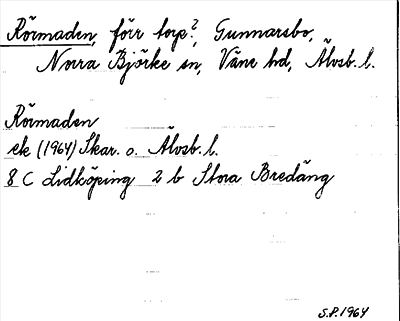 Rörmaden, förr torp?, Gunnarsbo,
Norra Björke sn, Väne hd, Älvsb. l.
Rörmaden
ek (1964) Skar. o. Älvsb. l.
8 C Lidköping 2 b Stora Bredäng
S.P. 1964